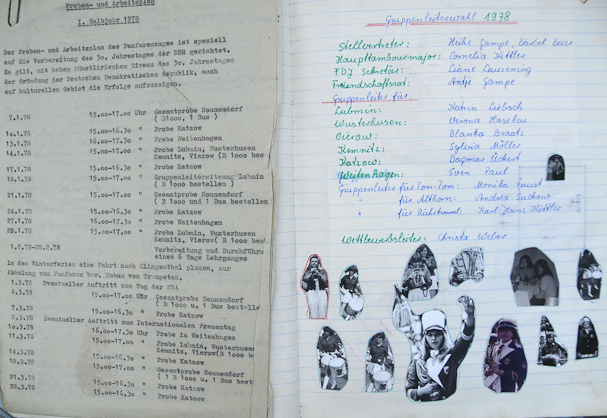 Proben- und Arbeitsplan
1. Halbjahr 1978
Der Proben- und Arbeitsplan des Fanfarenzuges ist speziell
auf die Vorbereitung des 30. Jahrestages der DDR gerichtet.
Es gilt, mit hohem künstlerischen Niveau des 30. Jahrestages
der Gründung der Deutschen Demokratischen Republik, auch
auf kulturellem Gebiet die Erfolge aufzuzeigen.
7.1.78 15.00-17.00 Uhr Gesamtprobe Nonnendorf
( B 1000, 1 Bus )
10.1.78 15.00-16.30 " Probe Katzow
13.1.78 16.00-17.30 " Probe Weitenhagen
14.1.78 15.00-17.00 " Probe Lubmin, Wusterhusen
Kemnitz, Vierow (B 1000 bes
17.1.78 15.00-16.30 " Probe Katzow
18.1.78 15.00-17.00 " Gruppenleitersitzung Lubmin
( B 1000 bestellen )
21.1.78 15.00-17.00 " Gesamtprobe Nonnendorf
( B 1000 und 1 Bus bestellen
24.1.78 15.00-16.30 " Probe Katzow
27.1.78 16.00-17.30 " Probe Weitenhagen
28.1.78 15.00-17.00 " Probe Lubmin, Wusterhusen
Kemnitz, Vierow( B 1000 bes
1.2.78-28.2.78 Vorbereitung und Durchführung
eines 6 Tage Lehrganges
In den Winterferien eine Fahrt nach Klingenthal planen, zur
Abholung von Fanfaren bzw. Umbau von Trompeten.
1.3.78 Eventueller Auftritt zum Tag der NVA
4.3.78 15.00-17.00 Uhr Gesamtprobe Nonnendorf
( B 1000 u. 1 Bus bestelle
7.3.78 15.00-16.30 " Probe Katzow
8.3.78 Eventueller Auftritt zum Internationalen Frauentag
10.3.78 16.00-17.30 Uhr Probe in Weitenhagen
11.3.78 15.00-17.00 " Probe Lubmin, Wusterhusen
Kemnitz, Vierow(B 1000 b
14.3.78 15.00-16.30 " Probe Katzow
18.3.78 15.00-17.00 " Gesamtprobe Nonnendorf
( B 1000 u. 1 Bus best
15.00-16.30 " Probe Katzow
28.3.78 15.00-16.30 " Probe Katzow
Gruppenleiterwahl 1978
Stellvertreter: Heike Gampe, Bärbel Beier
Haupttambourmajor: Cornelia Kettler
FDJ Sekretär: Liane
Freundschaftsrat: Antje Gampe
Gruppenleiter für:
Lubmin: Katrin Liebsch
Wusterhusen: Verona Haseleu
Vierow: Blanka Braatz
Kemnitz: Sylvia Möller
Katzow: Dagmar Eckert
Weitenhagen: Sven Paul
Gruppenleiter für Tom-Tom: Monika Faust
" für Althorn: Andrea Suckow
" für Rührtrommel: Karl-Heinz Kettler
Wettbewerbsleiter: Christa Weber